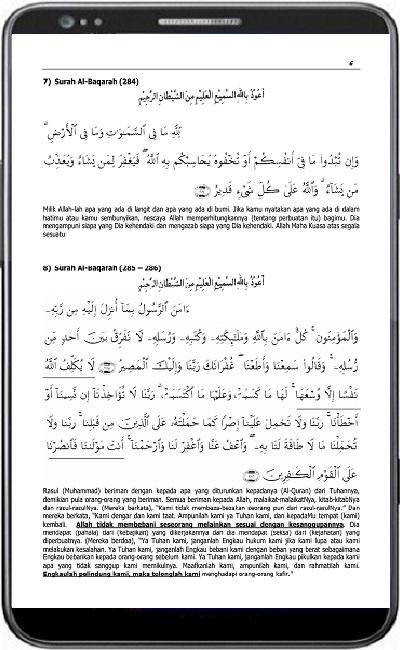 6
7) Surah Al-Baqarah (284)
أَعُوذُ بِاللهِ السَّمِيعِ الْعَلِيمِ مِنَ الشَّيْطَانِ الرَّجِيْمِ
لِّلَّهِ مَا فِى ٱلسَّمَـٰوَٰتِ وَمَا فِى ٱلْأَرْضِ ۗ
وَإِن تُبْدُوا۟ مَا فِىٓ أَنفُسِكُمْ أَوْ تُخْفُوهُ يُحَاسِبْكُم بِهِ ٱللَّهُ ۖ فَيَغْفِرُ لِمَن يَشَآءُ وَيُعَذِّبُ
مَن يَشَآءُ ۗ وَٱللَّهُ عَلَىٰ كُلِّ شَىْءٍ قَدِيرٌ
Milik Allah-lah apa yang ada di langit dan apa yang ada di bumi. Jika kamu nyatakan apa yang ada di dalam
hatimu atau kamu sembunyikan, nescaya Allah memperhitungkannya (tentang perbuatan itu) bagimu. Dia
mengampuni siapa yang Dia kehendaki dan mengazab siapa yang Dia kehendaki. Allah Maha Kuasa atas segala
sesuatu
8) Surah Al-Baqarah (285 – 286)
أَعُوذُ بِاللهِ السَّمِيعِ الْعَلِيمِ مِنَ الشَّيْطَانِ الرَّجِيْمِ
ءَامَنَ ٱلرَّسُولُ بِمَآ أُنزِلَ إِلَيْهِ مِن رَّبِّهِۦ
وَٱلْمُؤْمِنُونَ ۚ كُلٌّ ءَامَنَ بِٱللَّهِ وَمَلَـٰٓئِكَتِهِۦ وَكُتُبِهِۦ وَرُسُلِهِۦ لَا نُفَرِّقُ بَيْنَ أَحَدٍ مِّن
رُّسُلِهِۦ ۚ وَقَالُوا۟ سَمِعْنَا وَأَطَعْنَا ۖ غُفْرَانَكَ رَبَّنَا وَإِلَيْكَ ٱلْمَصِيرُ لَا يُكَلِّفُ ٱللَّهُ
نَفْسًا إِلَّا وُسْعَهَا ۚ لَهَا مَا كَسَبَتْ وَعَلَيْهَا مَا ٱكْتَسَبَتْ ۗ رَبَّنَا لَا تُؤَاخِذْنَآ إِن نَّسِينَآ أَوْ
أَخْطَأْنَا ۚ رَبَّنَا وَلَا تَحْمِلْ عَلَيْنَآ إِصْرًا كَمَا حَمَلْتَهُۥ عَلَى ٱلَّذِينَ مِن قَبْلِنَا ۚ رَبَّنَا وَلَا
تُحَمِّلْنَا مَا لَا طَاقَةَ لَنَا بِهِۦ ۖ وَٱعْفُ عَنَّا وَٱغْفِرْ لَنَا وَٱرْحَمْنَآ ۚ أَنتَ مَوْلَىٰنَا فَٱنصُرْنَا
عَلَى ٱلْقَوْمِ ٱلْكَـٰفِرِينَ
Rasul (Muhammad) beriman dengan kepada apa yang diturunkan kepadanya (Al-Quran) dari Tuhannya,
demikian pula orang-orang yang beriman. Semua beriman kepada Allah, malaikat-malaikatNya, kitab-kitabNya
dan rasul-rasulNya. (Mereka berkata), "Kami tidak membeza-bezakan seorang pun dari rasul-rasulNya." Dan
mereka berkata, "Kami dengar dan kami taat. Ampunilah kami ya Tuhan kami, dan kepadaMu tempat (kami)
kembali. Allah tidak membebani seseorang melainkan sesuai dengan kesanggupannya. Dia
mendapat (pahala) dari (kebajikan) yang dikerjakannya dan dia mendapat (seksa) dari (kejahatan) yang
diperbuatnya. (Mereka berdoa), "Ya Tuhan kami, janganlah Engkau hukum kami jika kami lupa atau kami
melakukan kesalahan. Ya Tuhan kami, janganlah Engkau bebani kami dengan beban yang berat sebagaimana
Engkau bebankan kepada orang-orang sebelum kami. Ya Tuhan kami, janganlah Engkau pikulkan kepada kami
apa yang tidak sanggup kami memikulnya. Maafkanlah kami, ampunilah kami, dan rahmatilah kami.
Engkaulah pelindung kami, maka tolonglah kami menghadapi orang-orang kafir."